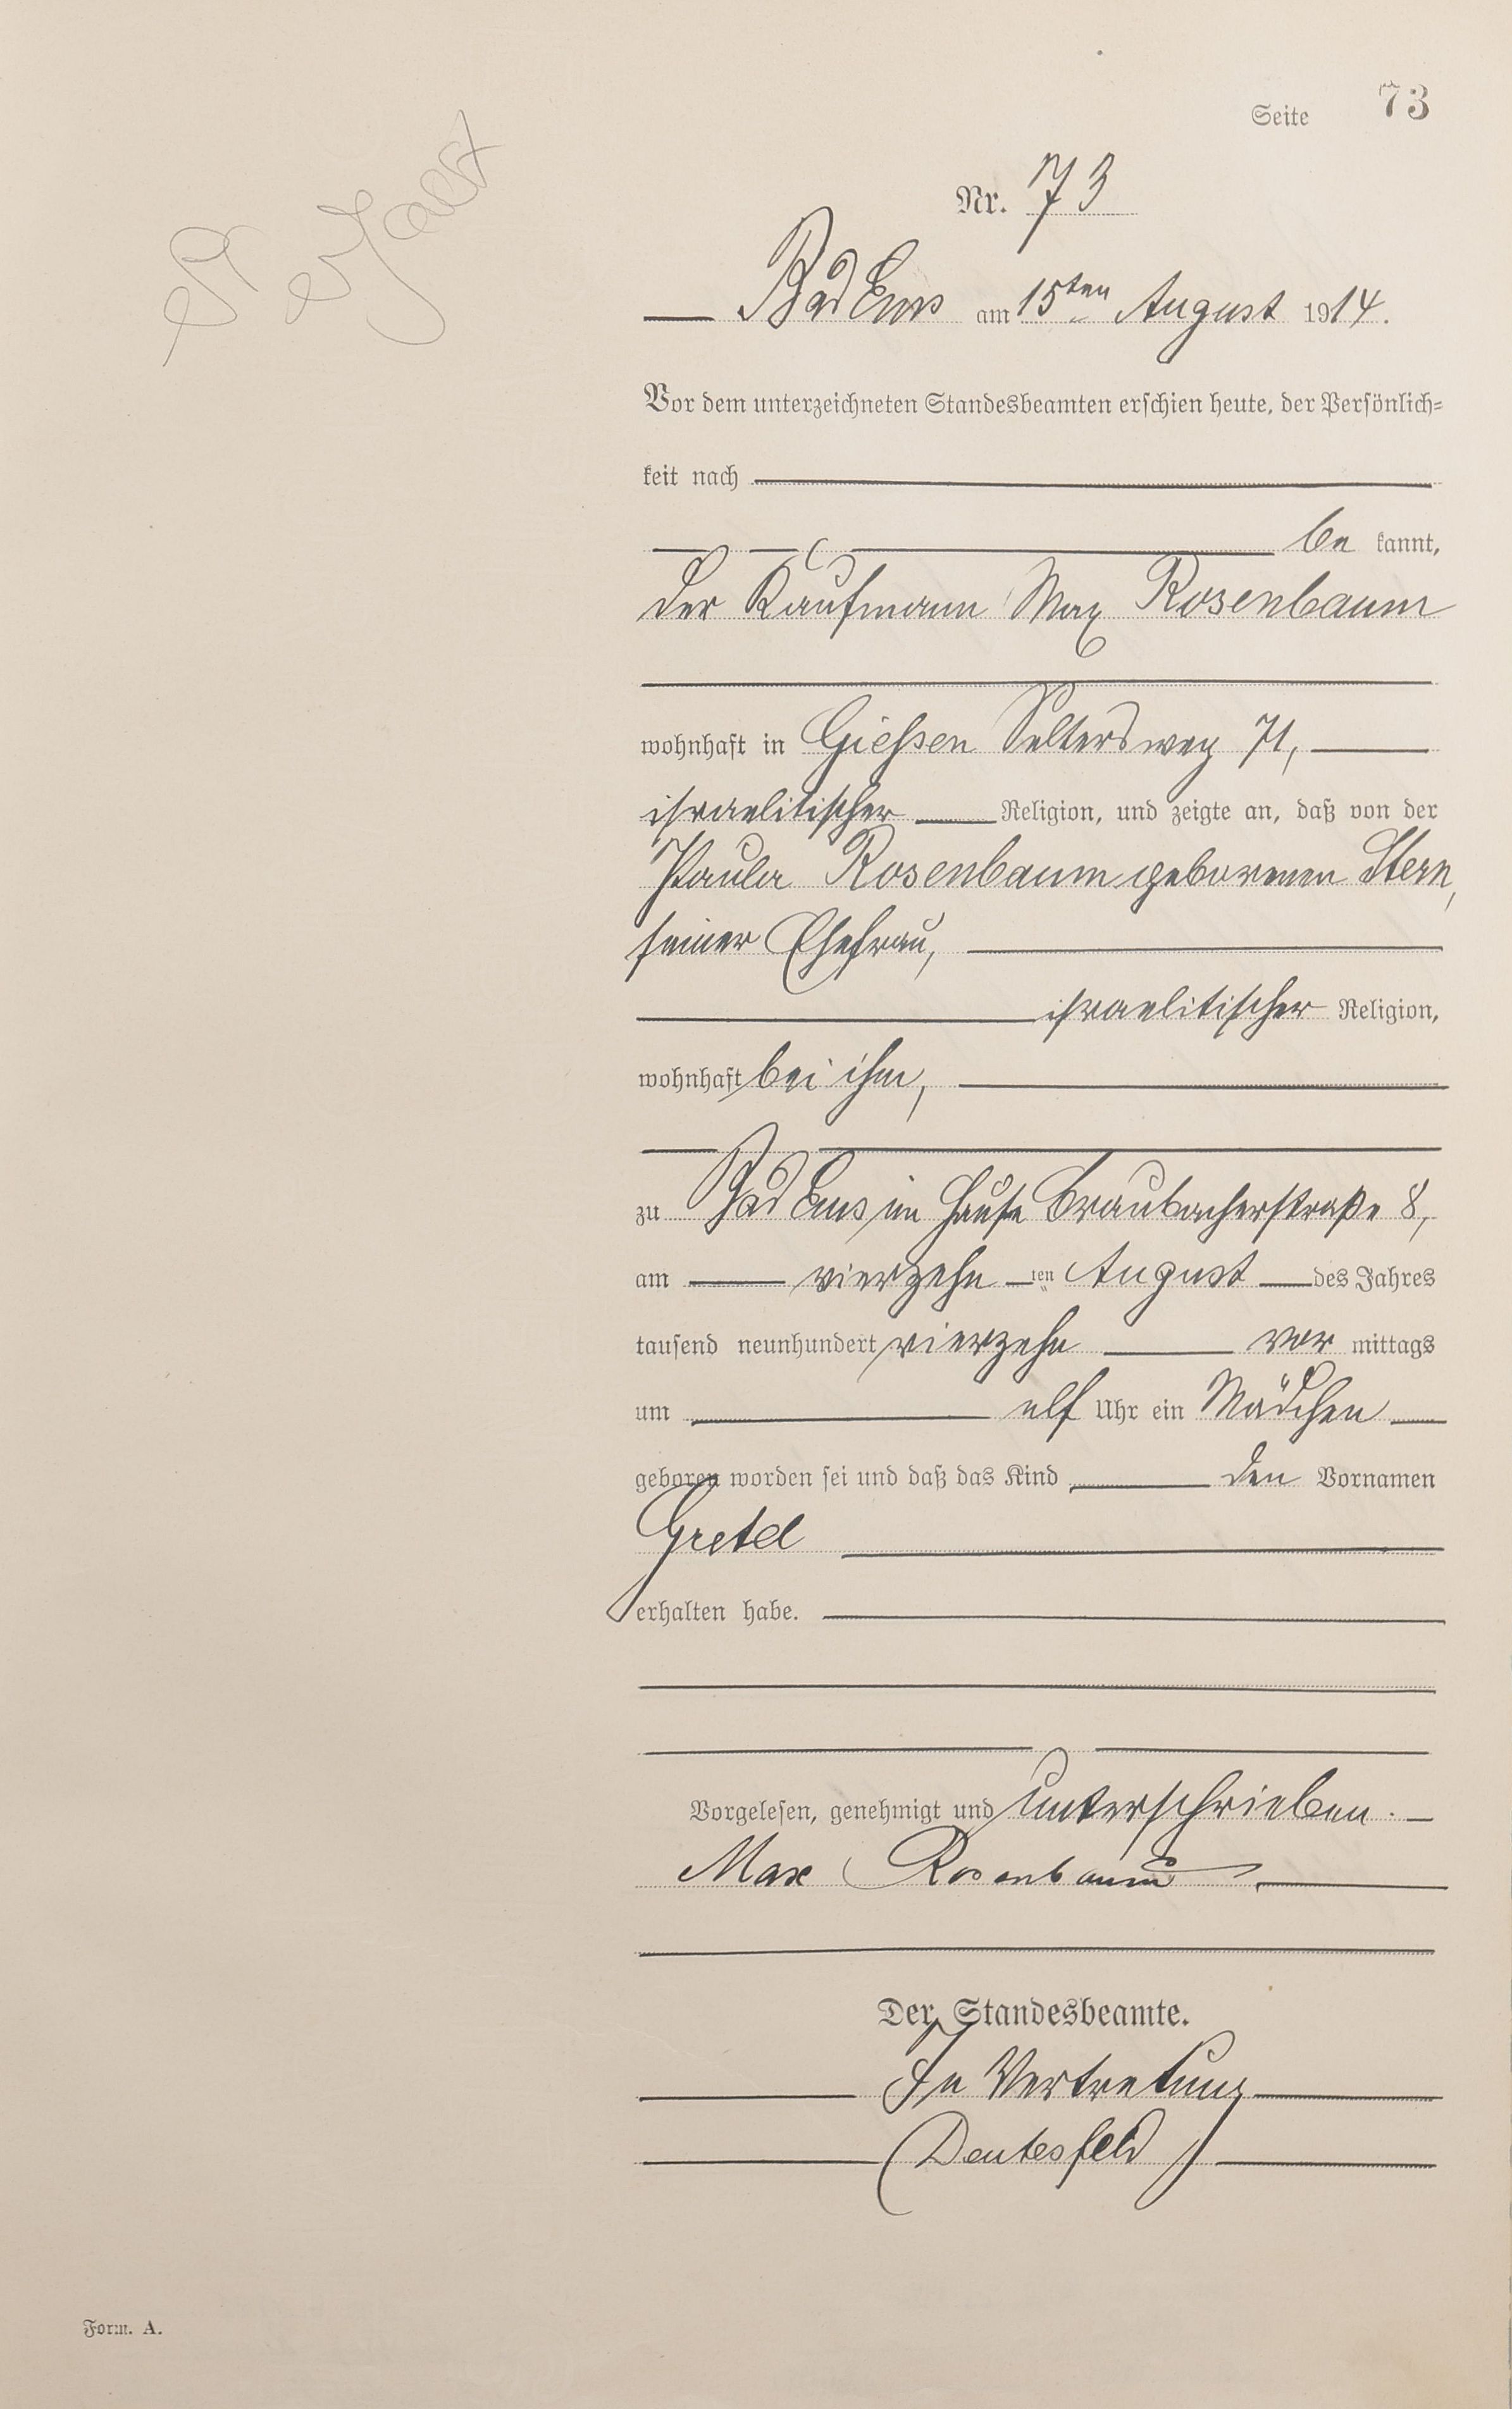 Seite 73
Nr. 73
Bad Ems am 15ten August 1914.
Vor dem unterzeichneten Standesbeamten erschien heute, der Persönlich=
keit nach
be kannt,
der Kaufmann Max Rosenbaum
wohnhaft in Giessen Seltersweg 71,
israelitischer Religion, und zeigte an, daß von der
Paula Rosenbaum geborenen Stern,
seiner Ehefrau,
israelitischer Religion,
wohnhaft bei ihm,
zu Bad Ems im Hause Braubacherstraße 8,
am vierzehn ten August des Jahres
tausend neunhundert vierzehn vor mittags
um elf Uhr ein Mädchen
geboren worden sei und daß das Kind den Vornamen
Gretel
erhalten habe.
Vorgelesen, genehmigt und unterschrieben.
Max Rosenbaum
Der Standesbeamte.
In Vertretung
Form. A.